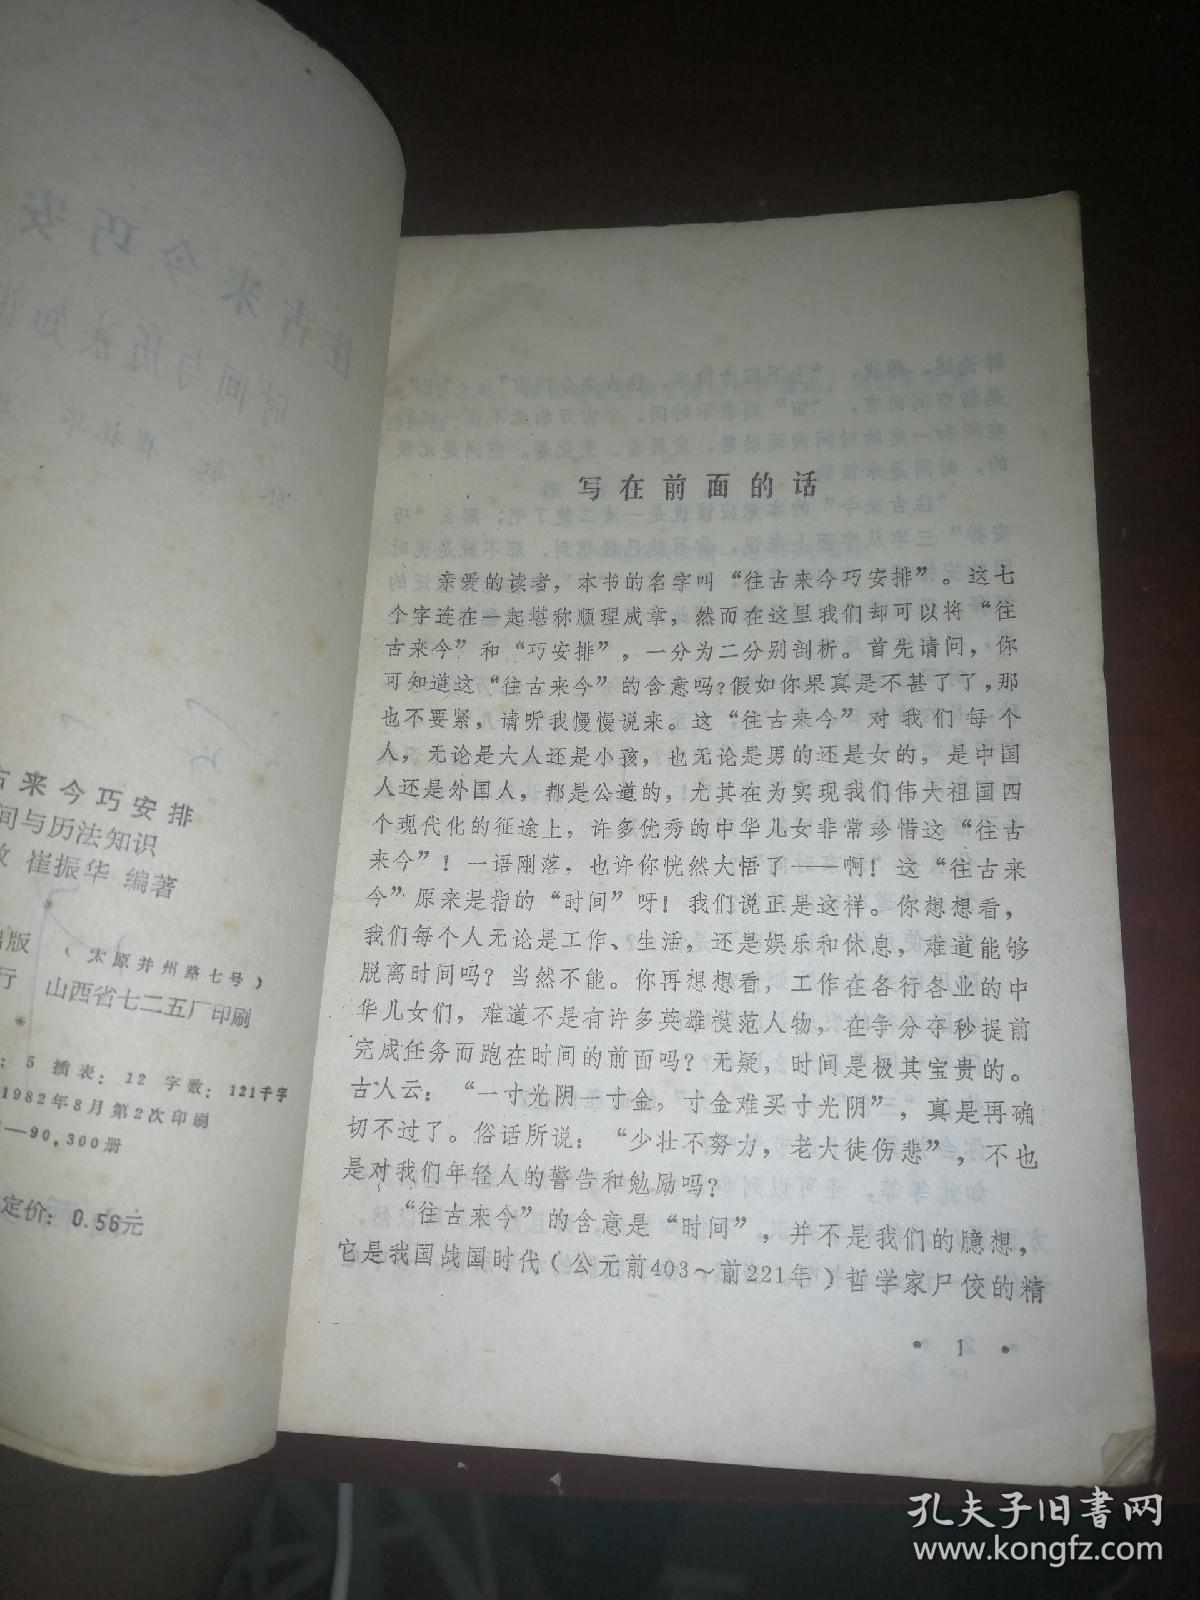 古来今巧安排
间与历法知识
崔振华 编著
出版 (太原并州路七号)
行 山西省七二五厂印刷
5 插表：12 字数：121千字
1982年8月第2次印刷
—90,300册
定价：0.56元
写在前面的话
亲爱的读者，本书的名字叫“往古来今巧安排”。这七
个字连在一起堪称顺理成章，然而在这里我们却可以将“往
古来今”和“巧安排”，一分为二分别剖析。首先请问，你
可知道这“往古来今”的含意吗？假如你果真是不甚了了，那
也不要紧，请听我慢慢说来。这“往古来今”对我们每个
人，无论是大人还是小孩，也无论是男的还是女的，是中国
人还是外国人，都是公道的，尤其在为实现我们伟大祖国四
个现代化的征途上，许多优秀的中华儿女非常珍惜这“往古
来今”！一语刚落，也许你恍然大悟了——啊！这“往古来
今”原来是指的“时间”呀！我们说正是这样。你想想看，
我们每个人无论是工作、生活，还是娱乐和休息，难道能够
脱离时间吗？当然不能。你再想想看，工作在各行各业的中
华儿女们，难道不是有许多英雄模范人物，在争分夺秒提前
完成任务而跑在时间的前面吗？无疑，时间是极其宝贵的。
古人云：“一寸光阴一寸金，寸金难买寸光阴”，真是再确
切不过了。俗话所说：“少壮不努力，老大徒伤悲”，不也
是对我们年轻人的警告和勉励吗？
“往古来今”的含意是“时间”，并不是我们的臆想，
它是我国战国时代（公元前403～前221年）哲学家尸佼的精
• 1 •
孔夫子旧书网
www.kongfz.com